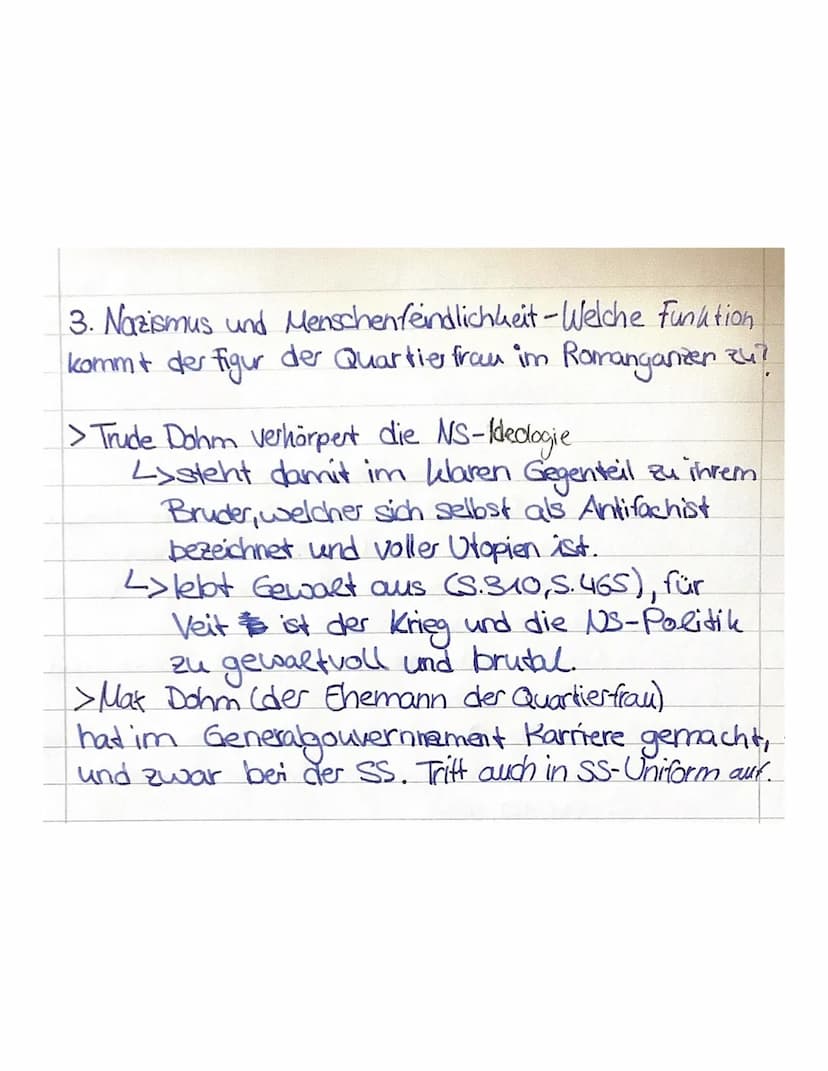 3. Nazismus und Menschenfeindlichkeit - Welche Funktion
kommt der Figur der Quartiersfrau im Romanganzen zu?
> Trude Dohm verkörpert die NS-Ideologie
↳ steht damit im klaren Gegenteil zu ihrem
Bruder, welcher sich selbst als Antifachist
bezeichnet und voller Utopien ist.
↳ lebt Gewalt aus (S.310, S.465), für
Veit ist der Krieg und die NS-Politik
zu gewaltvoll und brutal.
> Max Dohm (der Ehemann der Quartierfrau)
hat im Generalgouvernement Karriere gemacht,
und zwar bei der SS. Tritt auch in SS-Uniform auf.